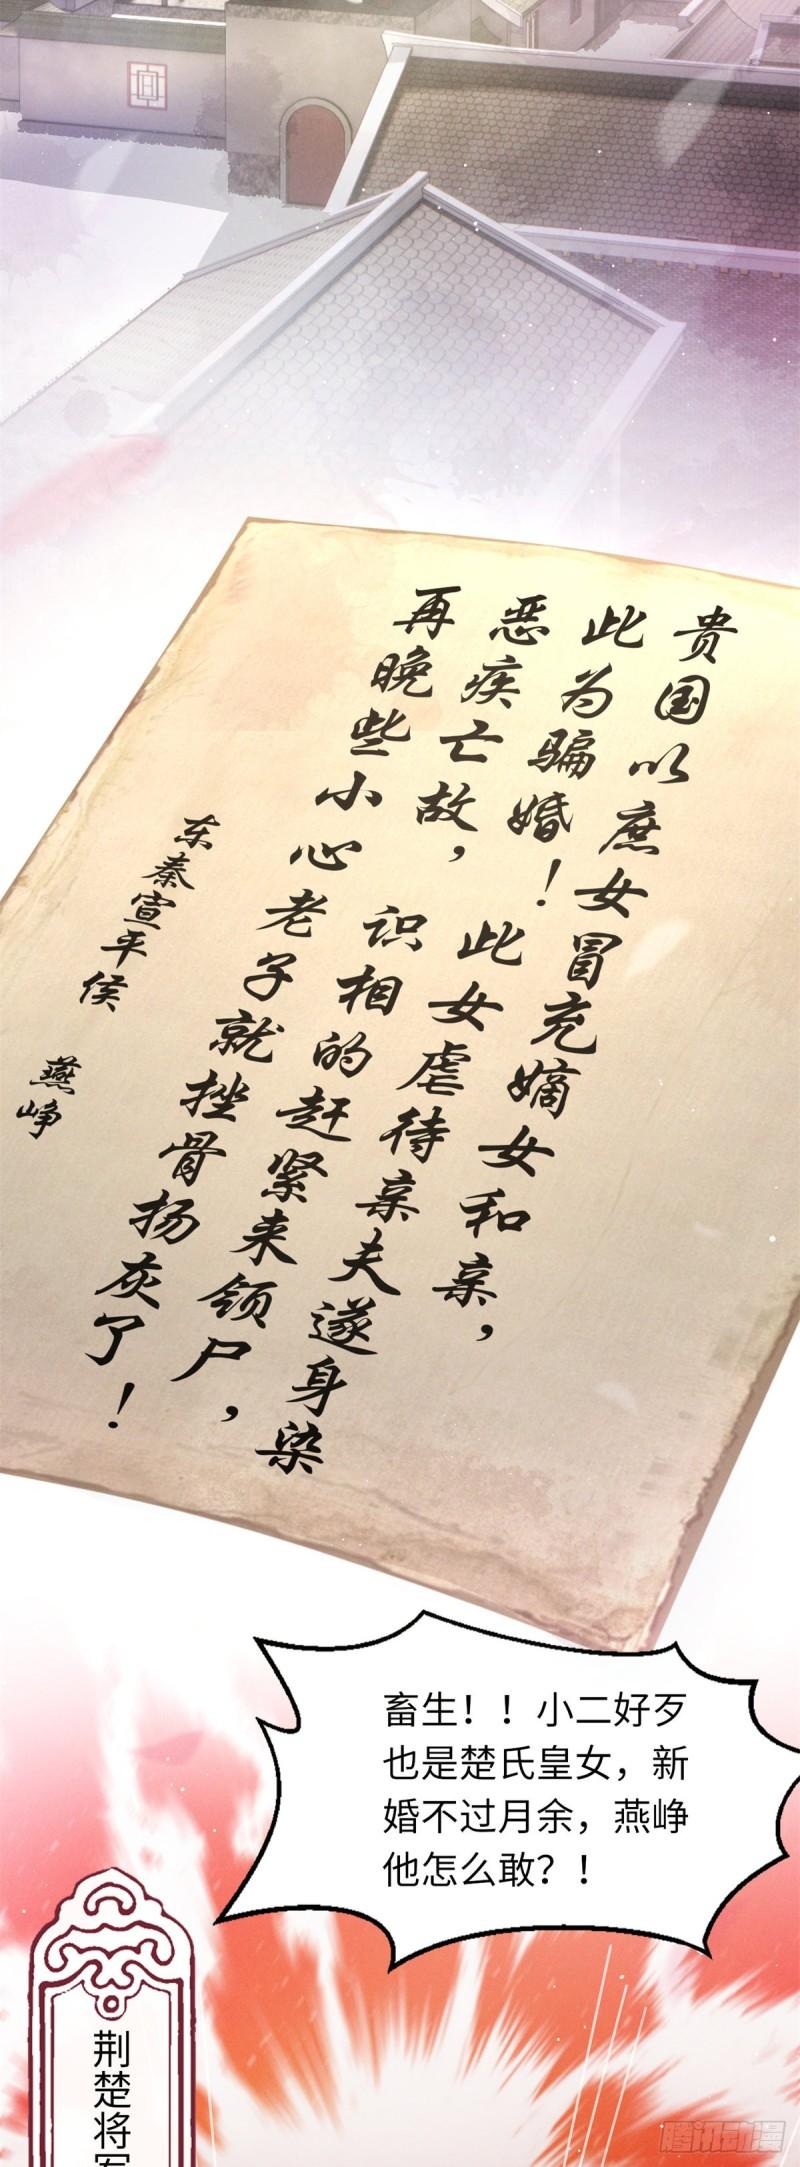 贵国以庶女冒充嫡女和亲，
此为骗婚！此女虐待亲夫遂身染
恶疾亡故，识相的赶紧来领尸，
再晚些小心老子就挫骨扬灰了！
东秦宣平侯 燕峥
畜生！！小二好歹
也是楚氏皇女，新
婚不过月余，燕峥
他怎么敢？！
荆楚将军
腾讯动漫